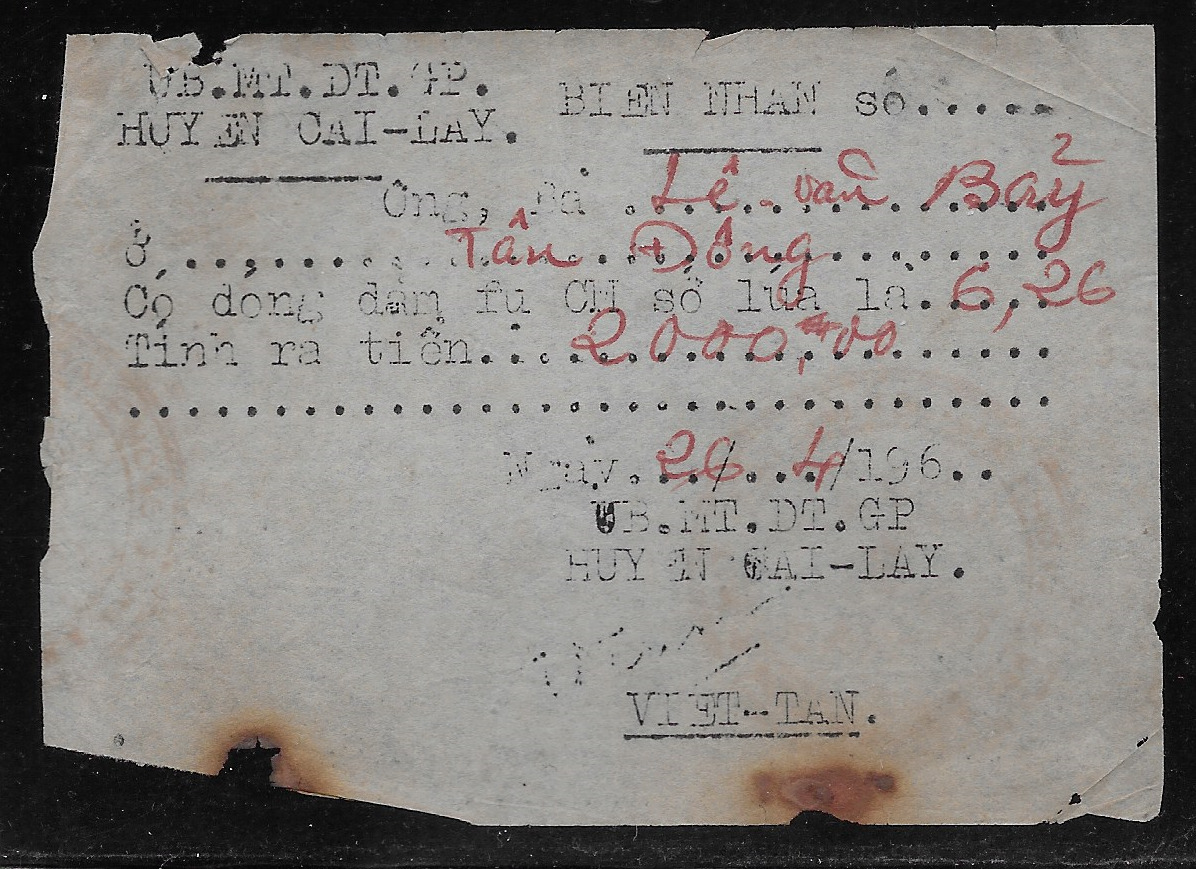 UB.MT.DT.GP.
HUYEN CAI-LAY.
BIEN NHAN số.....
Ông, Bà Lê văn Bảy
Ở, Tân Đông
Có dóng đảm fu CM số lúa là. 6,26
Tính ra tiền... 2000,00
Ngày. 26/ 4/196..
UB.MT.DT.GP
HUYEN CAI-LAY.
VIET-TAN.